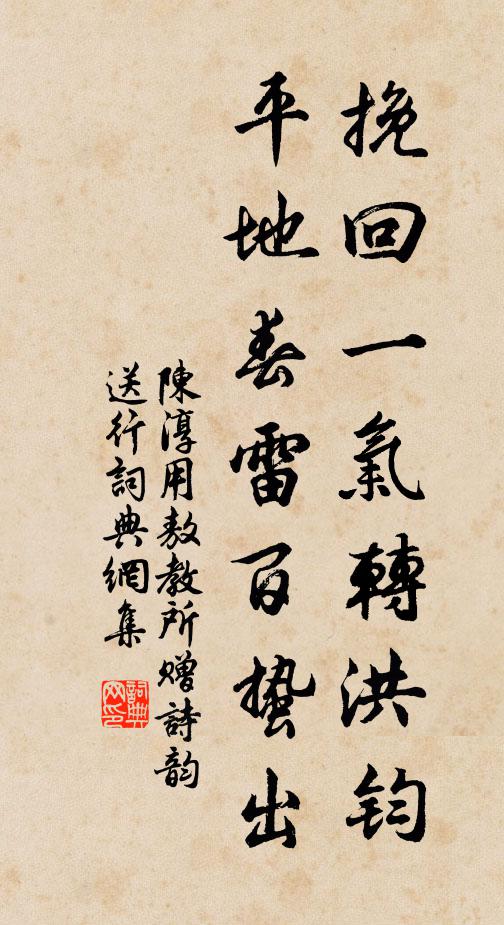 挽回一氣轉洪鈞
平地春雷百蟄出
陳淳用敖教所贈詩韵
送行詞典網集
詞典网印